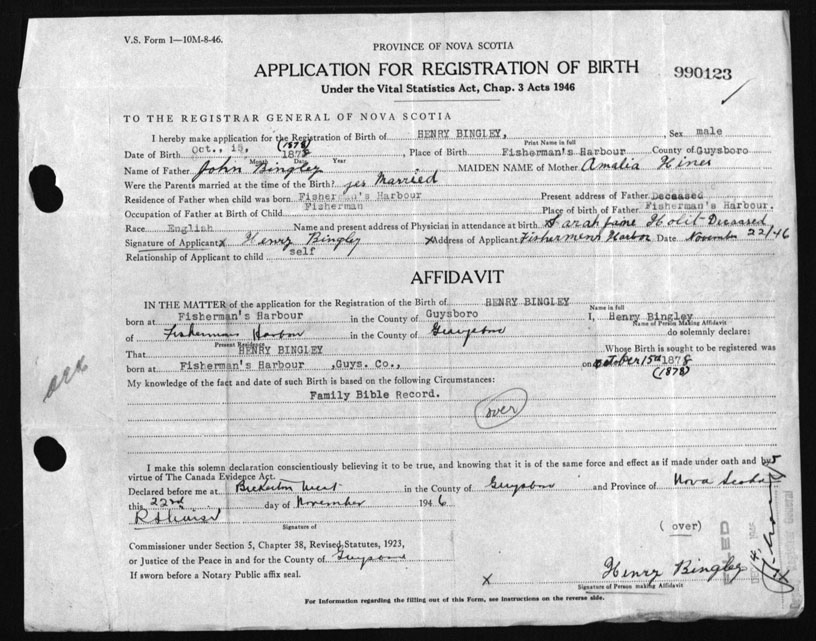 V.S. Form 1—10M-8-46.
PROVINCE OF NOVA SCOTIA
APPLICATION FOR REGISTRATION OF BIRTH
990123
Under the Vital Statistics Act, Chap. 3 Acts 1946
TO THE REGISTRAR GENERAL OF NOVA SCOTIA
I hereby make application for the Registration of Birth of HENRY BINGLEY, Sex male
Print Name in full
Date of Birth Oct., 15, 1878 (1878), Place of Birth Fisherman's Harbour County of Guysboro
Month Date Year
Name of Father John Bingley MAIDEN NAME of Mother Amalia Hines
Were the Parents married at the time of the Birth? yes Married
Residence of Father when child was born Fisherman's Harbour Present address of Father Deceased
Occupation of Father at Birth of Child Fisherman Place of birth of Father Fisherman's Harbour.
Race English Name and present address of Physician in attendance at birth Sarah Jane Deceased
Signature of Applicant x Henry Bingley x Address of Applicant Fishermens Harbor Date November 22/46
Relationship of Applicant to child self
AFFIDAVIT
IN THE MATTER of the application for the Registration of the Birth of HENRY BINGLEY
Name in full
born at Fisherman's Harbour in the County of Guysboro I, Henry Bingley
Name of Person Making Affidavit
of Fisherman Harbor in the County of Guysboro do solemnly declare:
Present Residence
That HENRY BINGLEY Whose Birth is sought to be registered was
born at Fisherman's Harbour ,Guys. Co., on October 15th 1878
(1878)
My knowledge of the fact and date of such Birth is based on the following Circumstances:
Family Bible Record.
over
I make this solemn declaration conscientiously believing it to be true, and knowing that it is of the same force and effect as if made under oath and by
virtue of The Canada Evidence Act.
Declared before me at Bickerton West in the County of Guysboro and Province of Nova Scotia
this 22nd day of November 1946
Signature of
(over)
Commissioner under Section 5, Chapter 38, Revised Statutes, 1923,
or Justice of the Peace in and for the County of Guysboro
If sworn before a Notary Public affix seal.
x Henry Bingley
Signature of Person making Affidavit
For Information regarding the filling out of this Form, see instructions on the reverse side.